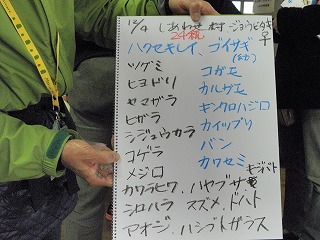 12/4 しあわせ村 ジョウビタキ
24種 ♀
ハクセキレイ、ゴイサギ
(幼)
ツグミ コガモ
ヒヨドリ カルガモ
ヤマガラ キンクロハジロ
ヒガラ カイツブリ
シジュウカラ バン
コゲラ カワセミ
メジロ キジバト
カワラヒワ、ハヤブサ
シロハラ スズメ、ドバト
アオジ、ハシブトガラス